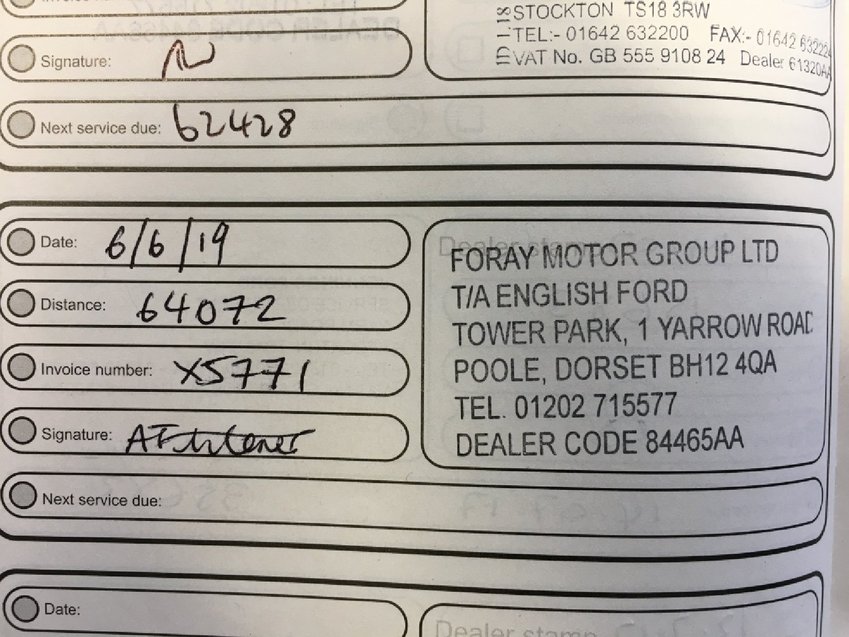 STOCKTON TS18 3RW
TEL:- 01642 632200 FAX:- 01642 632224
VAT No. GB 555 9108 24 Dealer 61320AA
Signature:
Next service due: 62428
Date: 6/6/19
Distance: 64072
Invoice number: X5771
Signature:
Next service due:
Dealer stamp
FORAY MOTOR GROUP LTD
T/A ENGLISH FORD
TOWER PARK, 1 YARROW ROAD
POOLE, DORSET BH12 4QA
TEL. 01202 715577
DEALER CODE 84465AA
Date:
Dealer stamp